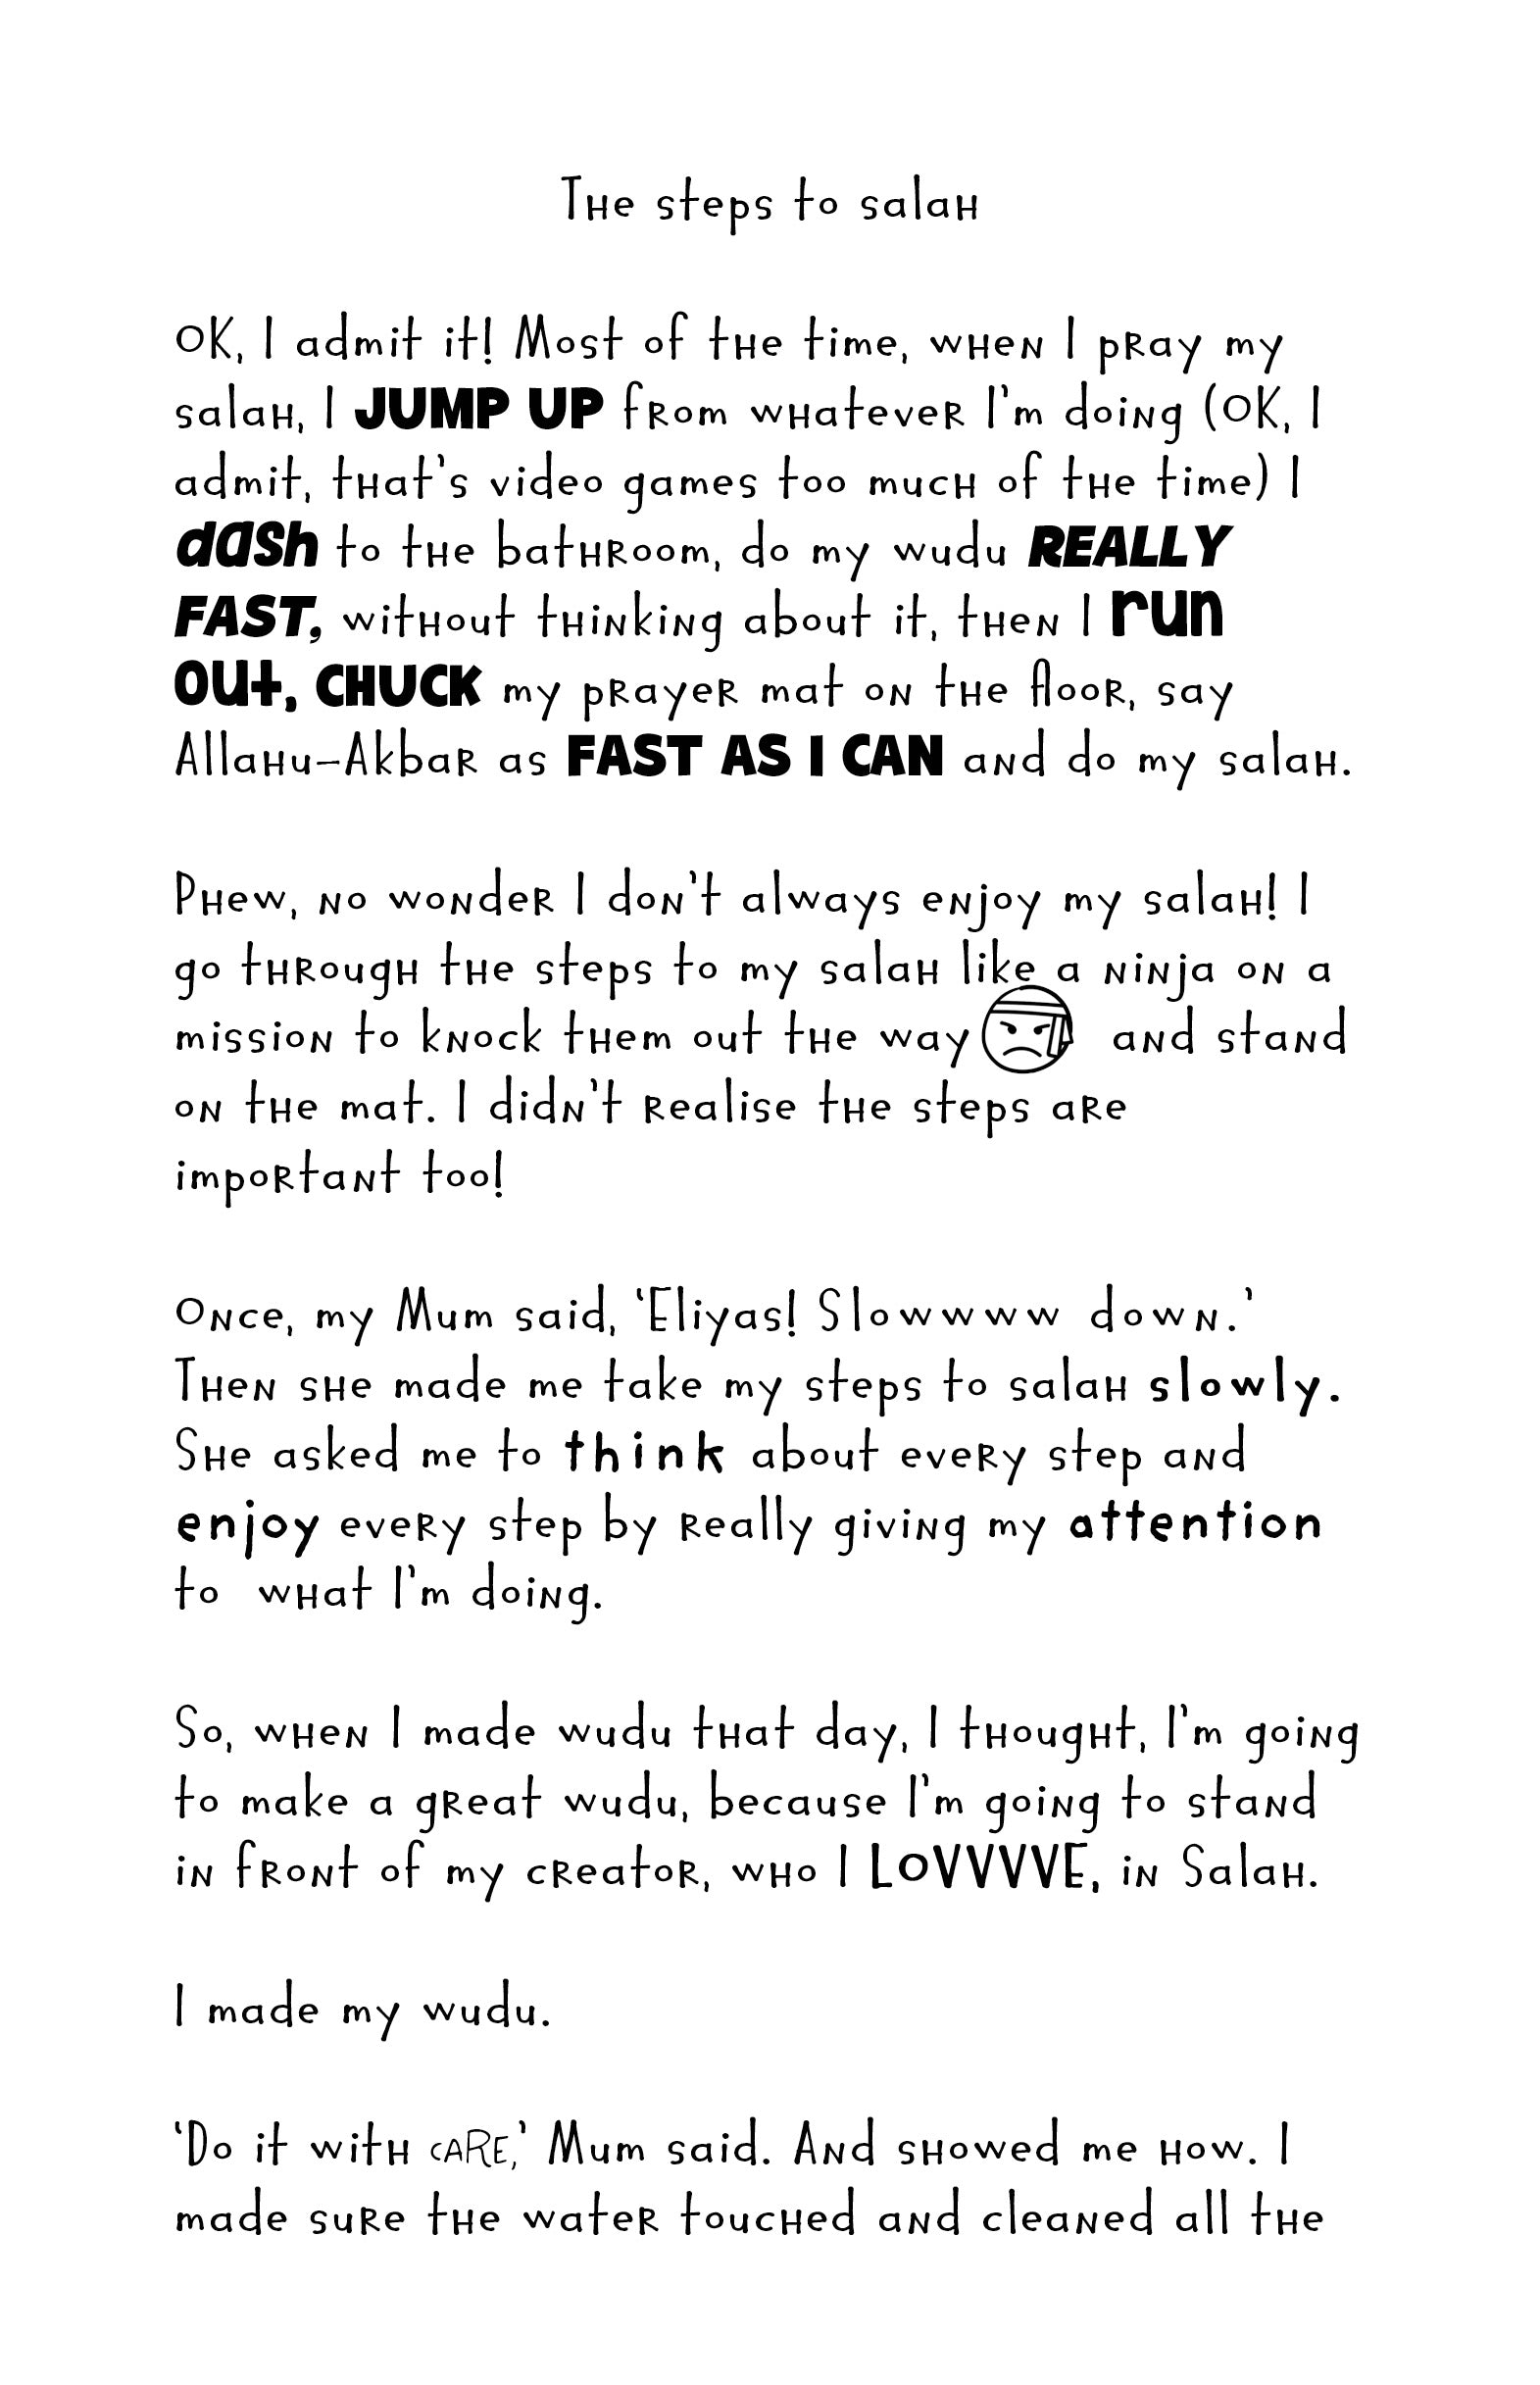 The steps to salah
OK, I admit it! Most of the time, when I pray my
salah, I JUMP UP from whatever I'm doing (OK, I
admit, that's video games too much of the time) I
dash to the bathroom, do my wudu REALLY
FAST, without thinking about it, then I run
out, CHUCK my prayer mat on the floor, say
Allahu-Akbar as FAST AS I CAN and do my salah.
Phew, no wonder I don't always enjoy my salah! I
go through the steps to my salah like a ninja on a
mission to knock them out the way and stand
on the mat. I didn't realise the steps are
important too!
Once, my Mum said, 'Eliyas! Slowwww down.'
Then she made me take my steps to salah slowly.
She asked me to think about every step and
enjoy every step by really giving my attention
to what I'm doing.
So, when I made wudu that day, I thought, I'm going
to make a great wudu, because I'm going to stand
in front of my creator, who I LOVVVVE, in Salah.
I made my wudu.
'Do it with CARE,' Mum said. And showed me how. I
made sure the water touched and cleaned all the